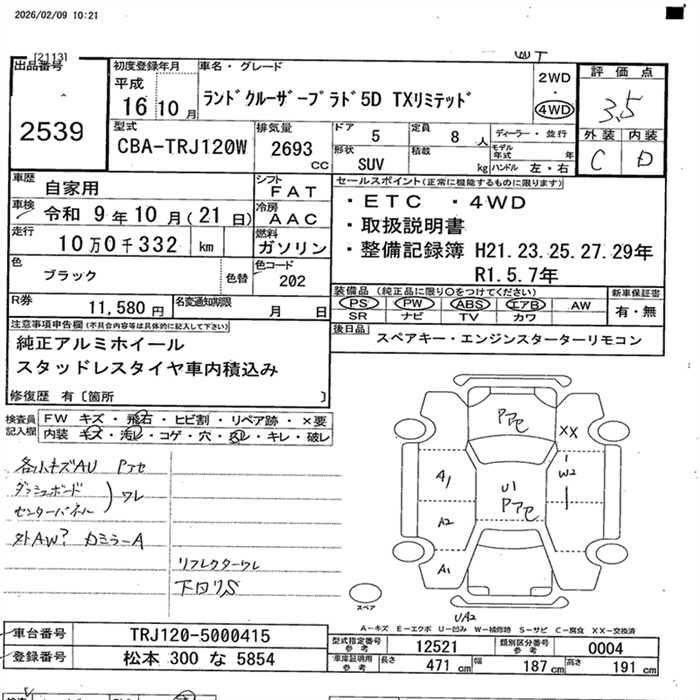 2026/02/09 10:21
[2113]
出品番号
2539
初度登録年月
平成
16 10 月
車名・グレード
ランドクルーザープラド5D TXリミテッド
2WD
・
4WD
評価点
3.5
外装 内装
C D
型式
CBA-TRJ120W
排気量
2693
CC
ドア 5
定員 8 人
形状 SUV
積載 kg
ディーラー・並行
モデル年式 年
ハンドル 左・右
車歴 自家用
シフト FAT
車検 令和 9 年 10 月(21 日)
冷房 AAC
走行 10 万 0 千 332 km
燃料 ガソリン
色 ブラック
色替
色コード 202
R券 11,580 円
名変通知期限 月 日
セールスポイント(正常に機能するものに限ります)
・ETC ・4WD
・取扱説明書
・整備記録簿 H21.23.25.27.29年
R1.5.7年
装備品 (純正品に限り○をつけてください)
PS PW ABS エアB AW
SR ナビ TV カワ
新車保証書
有・無
後日品
スペアキー・エンジンスターターリモコン
注意事項申告欄(不具合内容等は具体的に記入して下さい)
純正アルミホイール
スタッドレスタイヤ車内積込み
修復歴 有〔箇所 〕
検査員記入欄
FW キズ・飛石・ヒビ割・リペア跡・×要
内装 キズ・汚レ・コゲ・穴・スレ・キレ・破レ
各小キズAU Pアセ
ダッシュボード
センターパネル
ワレ
外AW? カミラーA
リフレクターワレ
下回りS
Pアセ
XX
A1
U1
Pアセ
W2
A2
A1
UA2
スペア
A-キズ E-エクボ U-凹み W-補修跡 S-サビ C-腐食 XX-交換済
車台番号 TRJ120-5000415
登録番号 松本 300 な 5854
型式指定番号 参考 12521
類別区分番号 参考 0004
車庫証明用 参考 長さ 471 cm 幅 187 cm 高さ 191 cm